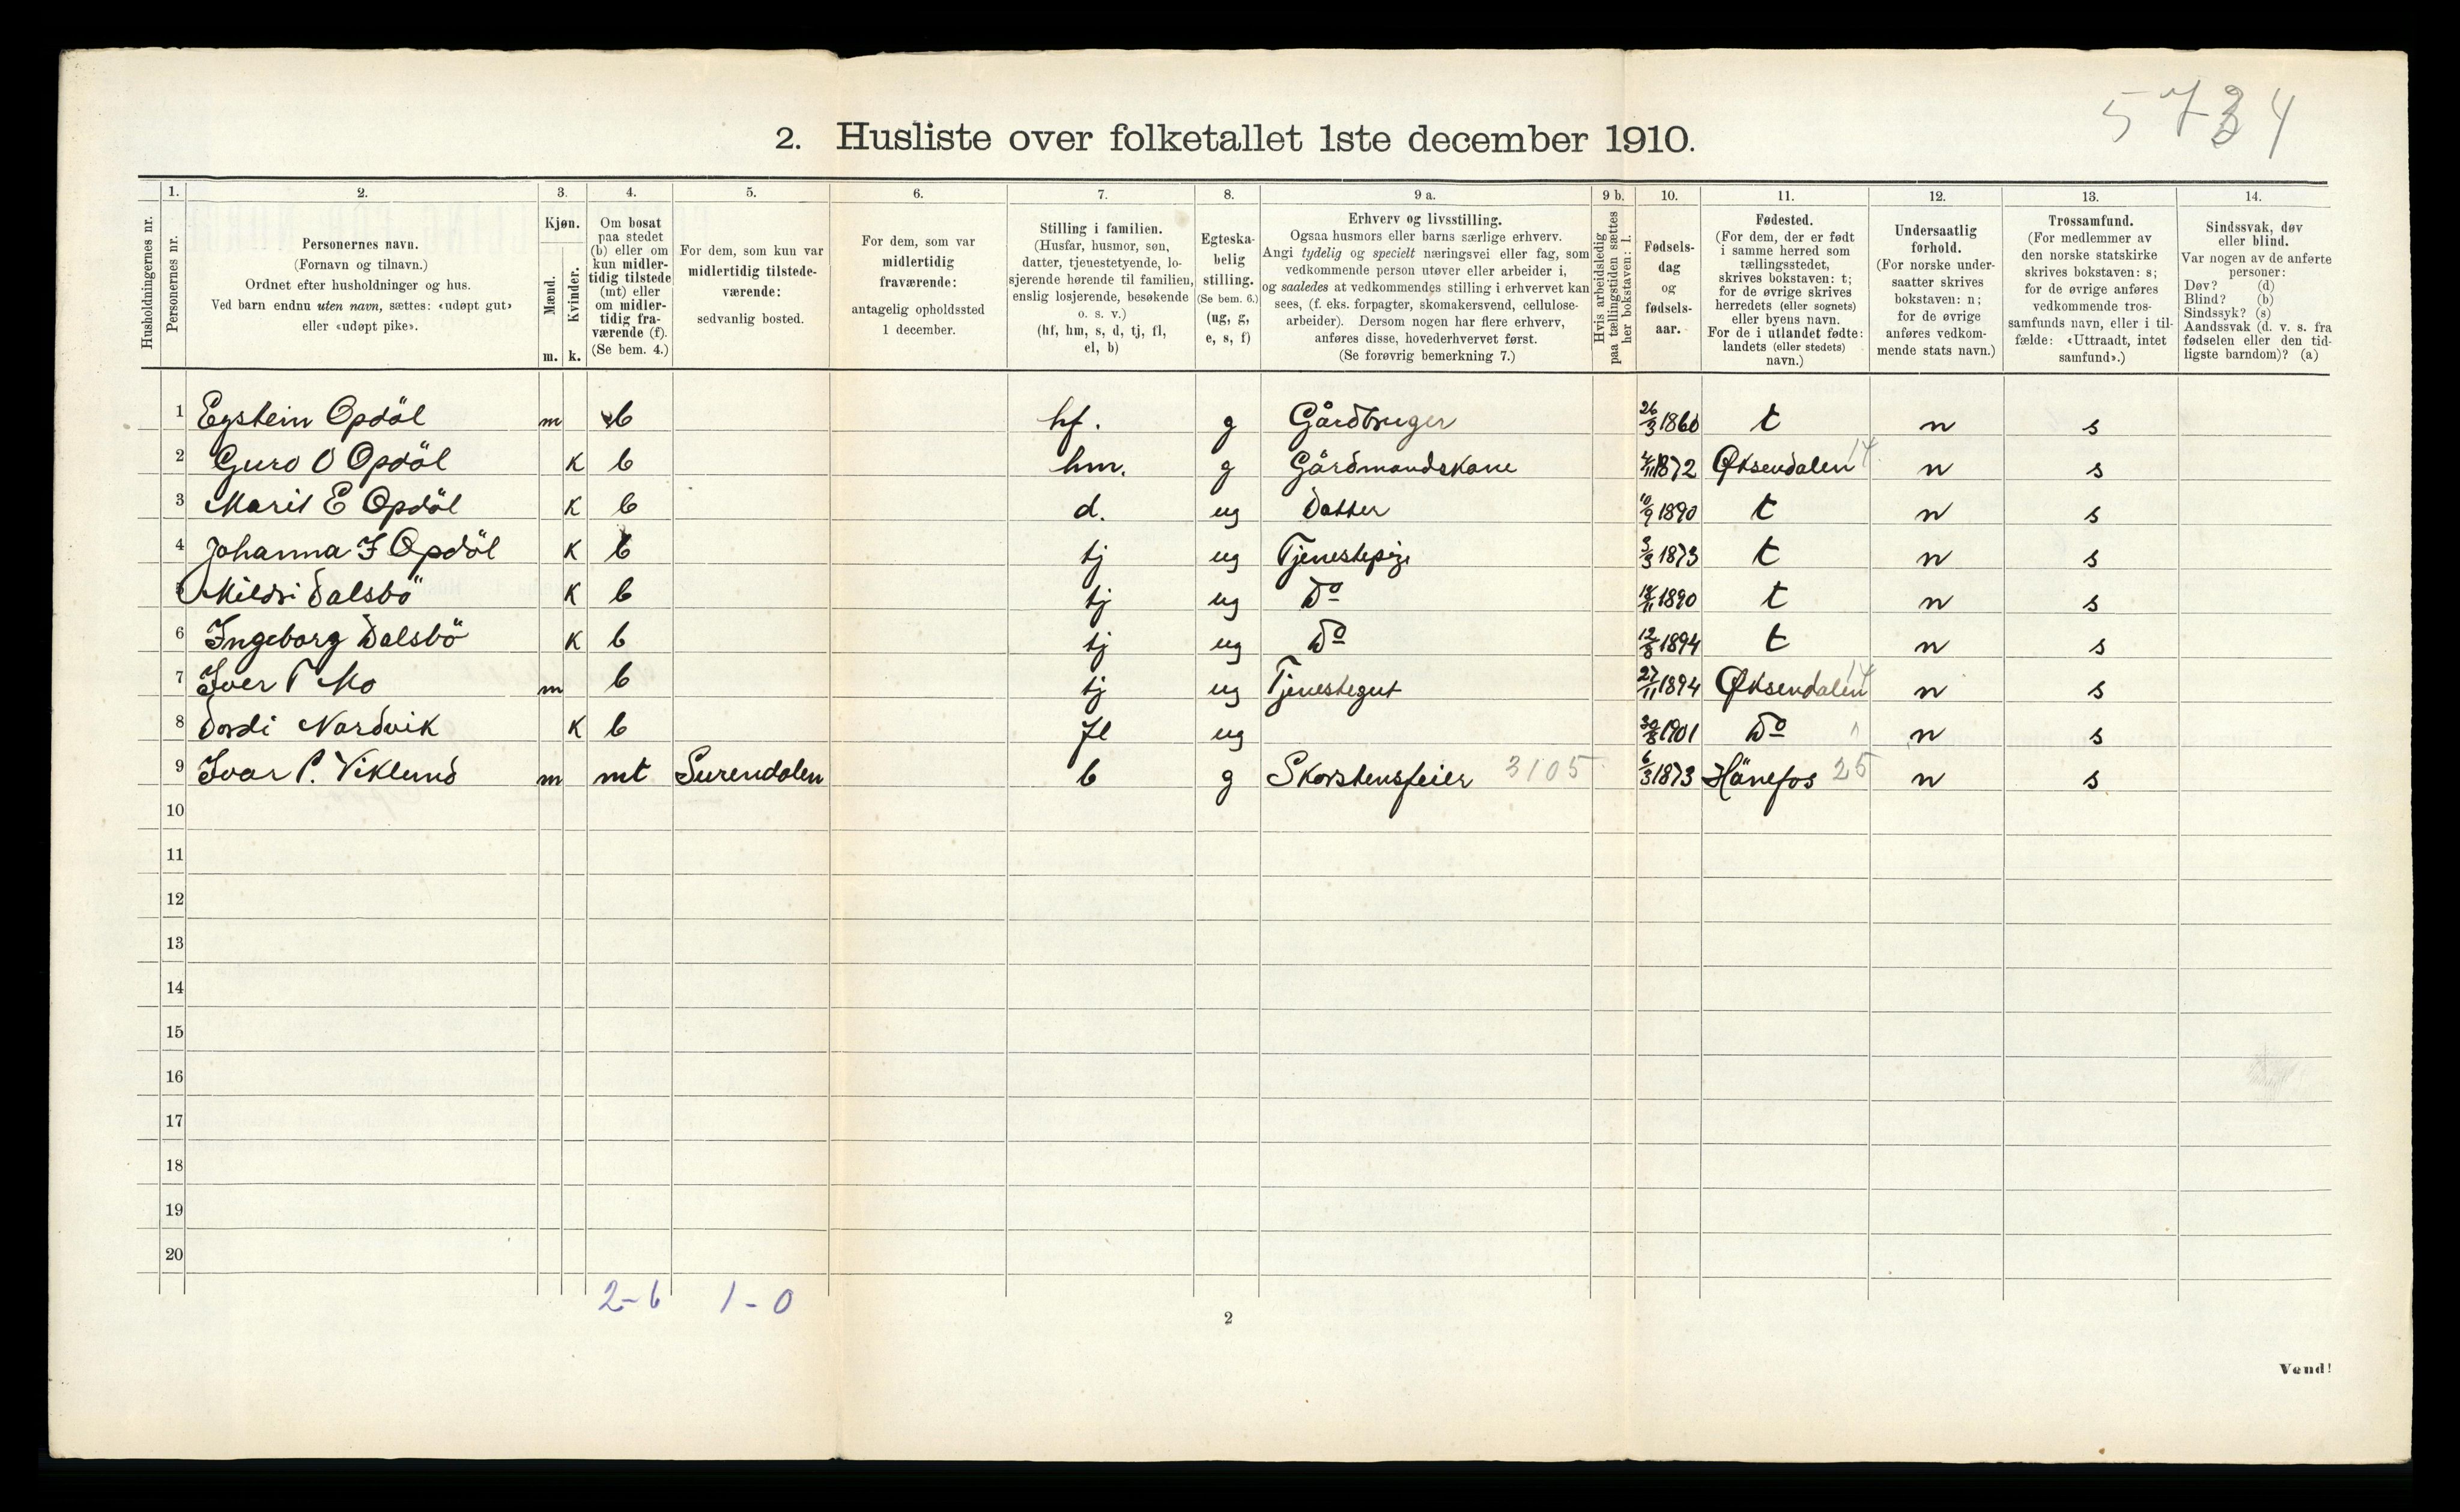 5734
2. Husliste over folketallet 1ste december 1910.
Husholdningernes nr.
1. Personernes nr.
2. Personernes navn. (Fornavn og tilnavn.) Ordnet efter husholdninger og hus. Ved barn endnu uten navn, sættes: «udøpt gut» eller «udøpt pike».
3. Kjøn. Mænd. m. Kvinder. k.
4. Om bosat paa stedet (b) eller om kun midler- tidig tilstede (mt) eller om midler- tidig fra- værende (f). (Se bem. 4.)
5. For dem, som kun var midlertidig tilstede- værende: sedvanlig bosted.
6. For dem, som var midlertidig fraværende: antagelig opholdssted 1 december.
7. Stilling i familien. (Husfar, husmor, søn, datter, tjenestetyende, lo- sjerende hørende til familien, enslig losjerende, besøkende o. s. v.) (hf, hm, s, d, tj, fl, el, b)
8. Egteska- belig stilling. (Se bem. 6.) (ug, g, e, s, f)
9 a. Erhverv og livsstilling. Ogsaa husmors eller barns særlige erhverv. Angi tydelig og specielt næringsvei eller fag, som vedkommende person utøver eller arbeider i, og saaledes at vedkommendes stilling i erhvervet kan sees, (f. eks. forpagter, skomakersvend, cellulose- arbeider). Dersom nogen har flere erhverv, anføres disse, hovederhvervet først. (Se forøvrig bemerkning 7.)
9 b. Hvis arbeidsledig paa tællingstiden sættes her bokstaven: l.
10. Fødsels- dag og fødsels- aar.
11. Fødested. (For dem, der er født i samme herred som tællingsstedet, skrives bokstaven: t; for de øvrige skrives herredets (eller sognets) eller byens navn. For de i utlandet fødte: landets (eller stedets) navn.)
12. Undersaatlig forhold. (For norske under- saatter skrives bokstaven: n; for de øvrige anføres vedkom- mende stats navn.)
13. Trossamfund. (For medlemmer av den norske statskirke skrives bokstaven: s; for de øvrige anføres vedkommende tros- samfunds navn, eller i til- fælde: «Uttraadt, intet samfund».)
14. Sindssvak, døv eller blind. Var nogen av de anførte personer: Døv? (d) Blind? (b) Sindssyk? (s) Aandssvak (d. v. s. fra fødselen eller den tid- ligste barndom)? (a)
1 Eystein Opdöl m b hf. g Gårdbruger 26/3 1860 t n s
2 Guro O Opdöl K b hm. g Gårdmandskone 4/11 1872 Øksendalen 14 n s
3 Marit E Opdöl K b d. ug Datter 10/9 1890 t n s
4 Johanna I Opdöl K b tj ug Tjenestepige 3/3 1873 t n s
5 Mildri Dalsbö K b tj ug Do 18/11 1890 t n s
6 Ingeborg Dalsbö K b tj ug Do 12/8 1894 t n s
7 Iver T Mo m b tj ug Tjenestegut 27/11 1894 Øksendalen 14 n s
8 Dordi Nordvik K b fl ug 30/8 1901 Do n s
9 Ivar P. Viklund m mt Surendalen b g Skorstensfeier 3105 6/3 1873 Hånefos 25 n s
10
11
12
13
14
15
16
17
18
19
20
2-6 1-0
2
Vend!